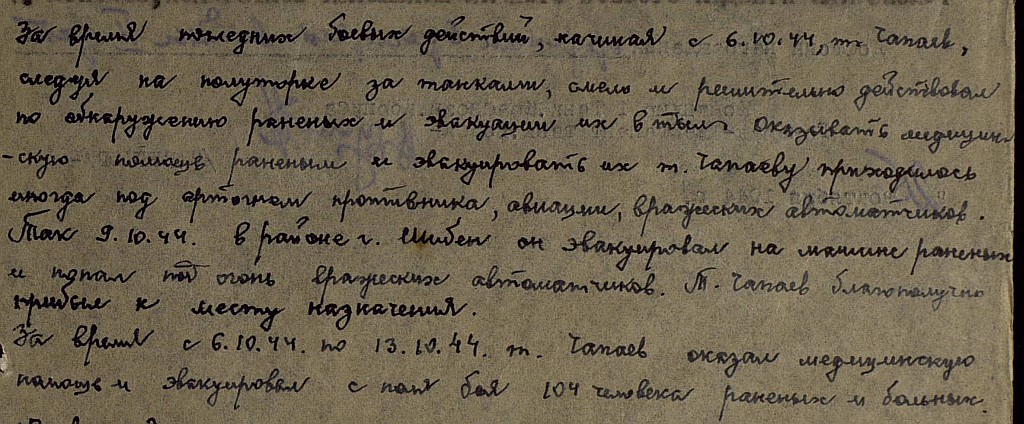 За время последних боевых действий, начиная с 6.10.44, т. Чапаев,
следуя на полуторке за танками, смело и решительно действовал
по обнаружению раненых и эвакуации их в тыл. Оказывать медицин-
-скую помощь раненым и эвакуировать их т. Чапаеву приходилось
иногда под артогнем противника, авиации, вражеских автоматчиков.
Так 9.10.44. в районе г. Шибен он эвакуировал на машине раненых
и попал под огонь вражеских автоматчиков. Т. Чапаев благополучно
прибыл к месту назначения.
За время с 6.10.44. по 13.10.44. т. Чапаев оказал медицинскую
помощь и эвакуировал с поля боя 104 человека раненых и больных.